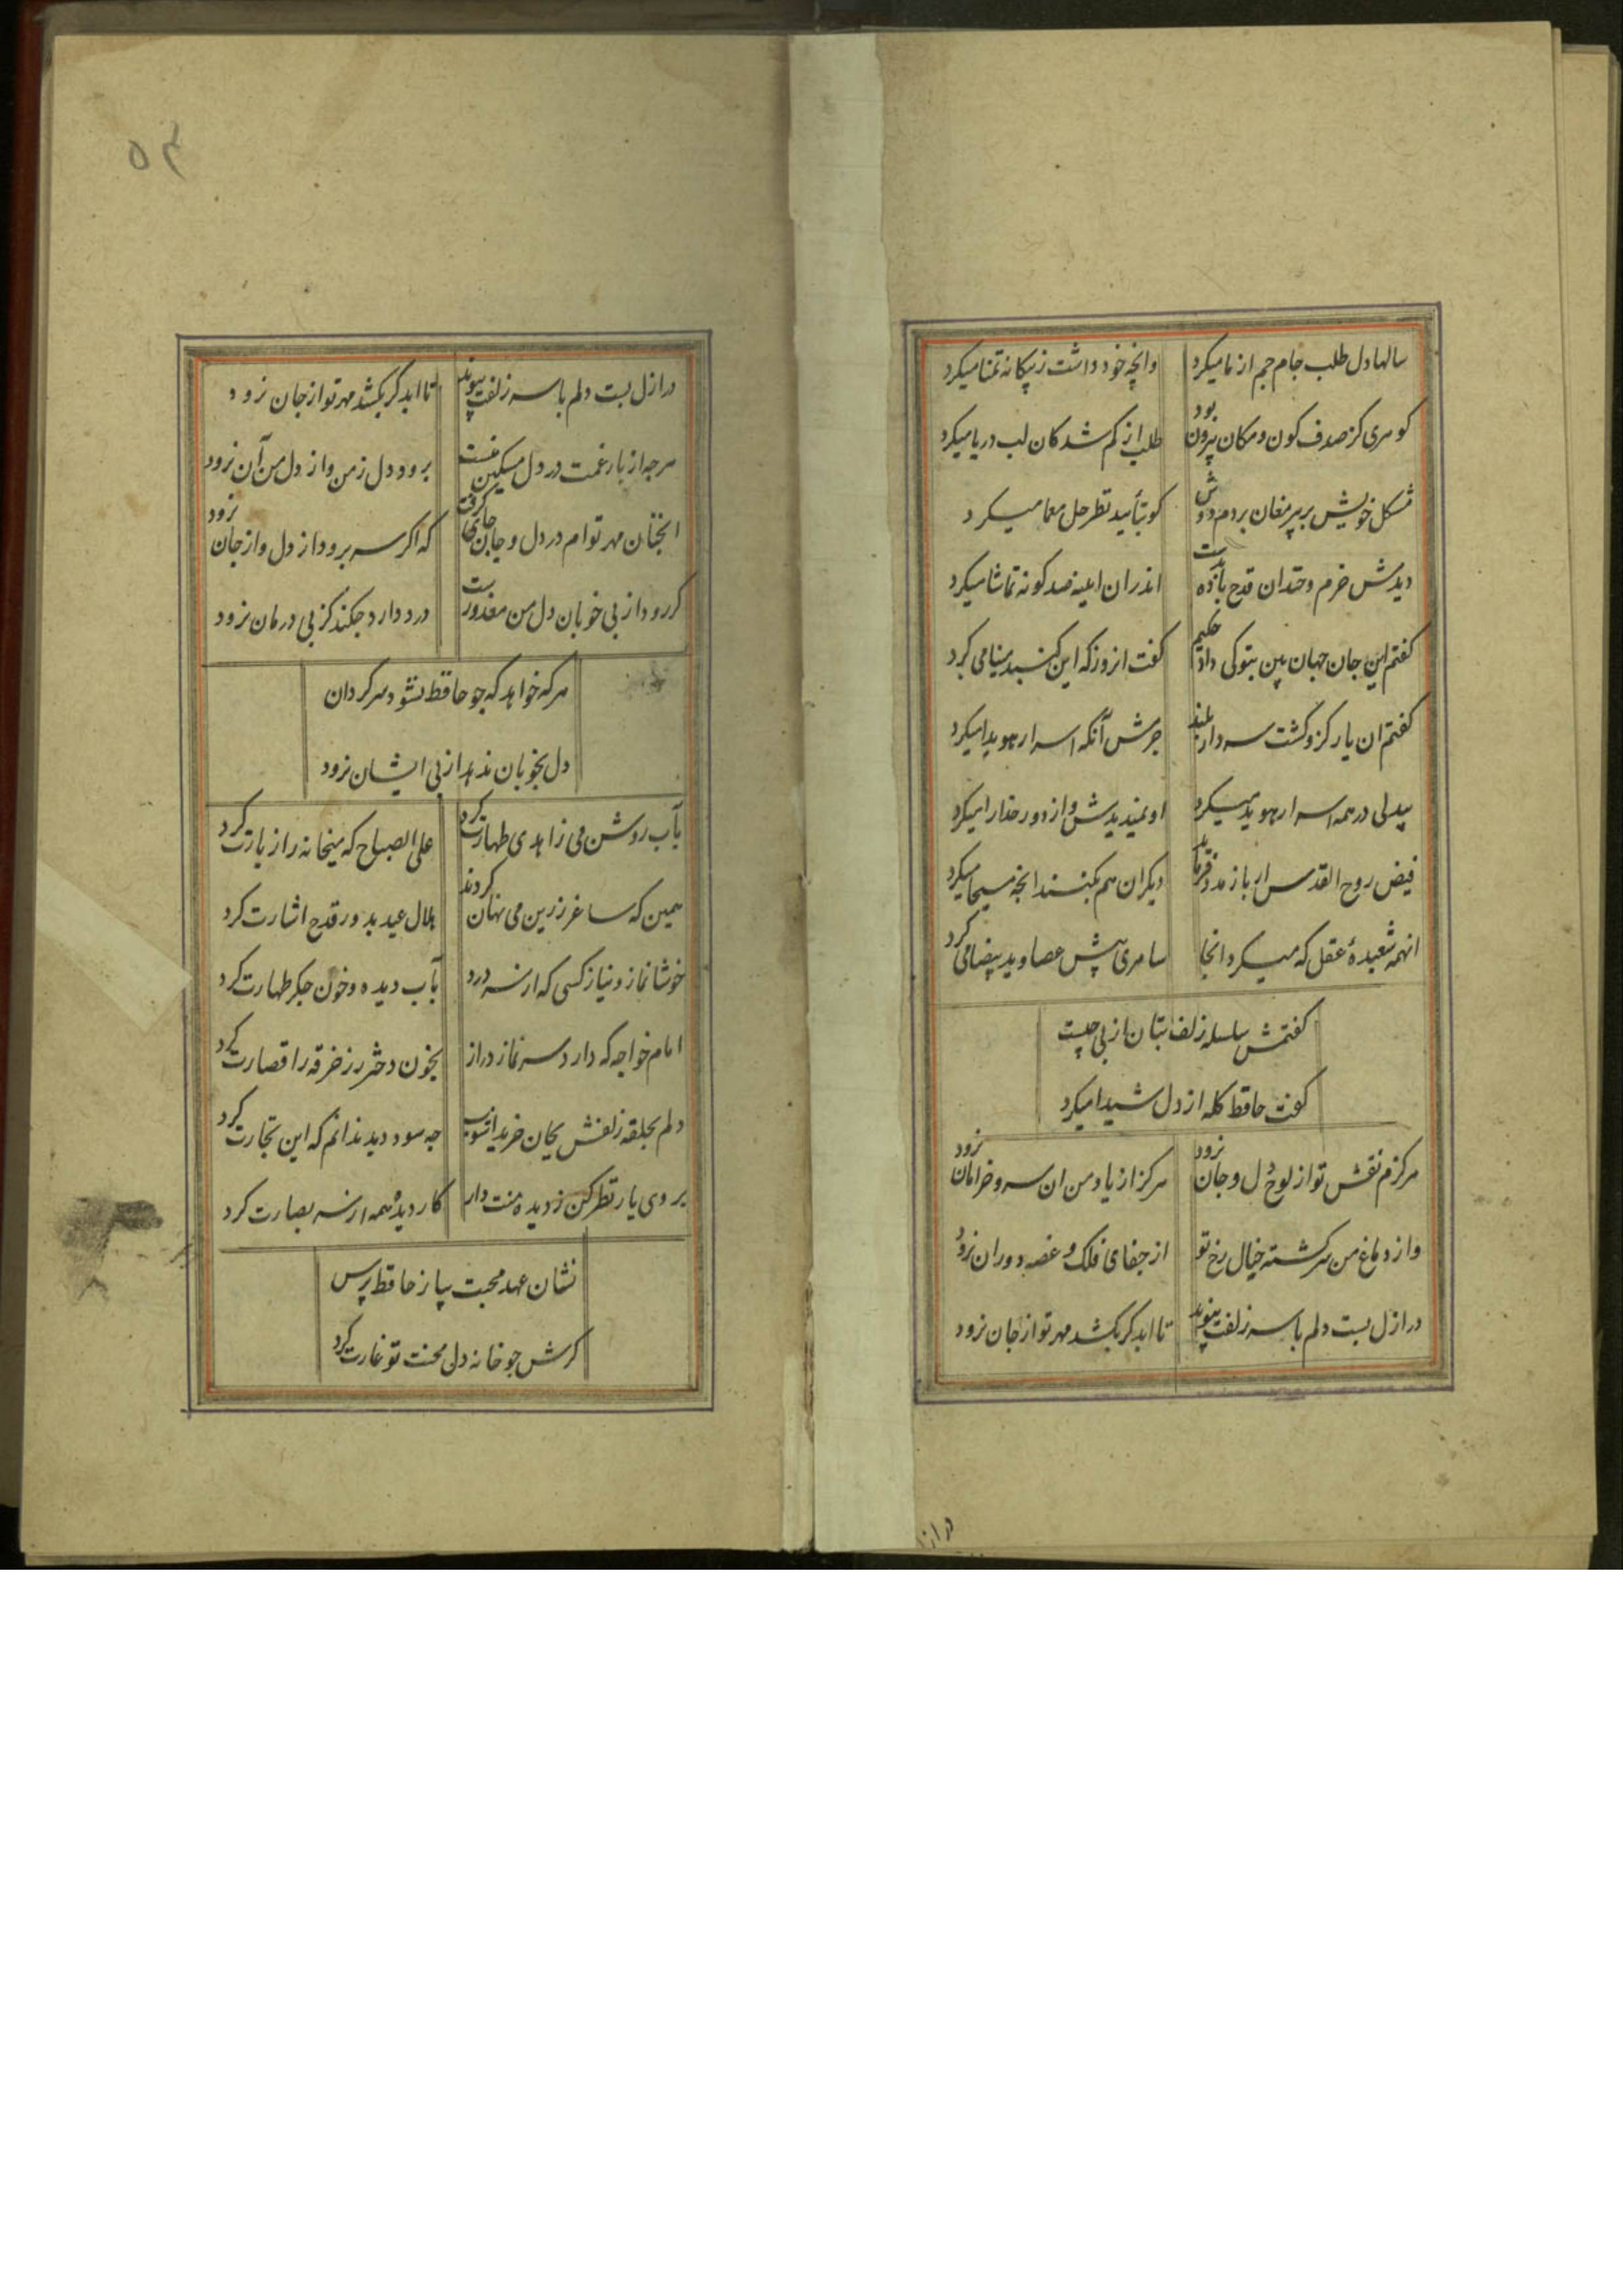 سالها دل طلب جام جم از ما میکرد
وانچه خود داشت ز بیکانه تمنا میکرد
کوهری کز صدف کون و مکان بیرون بود
طلب از کم شدکان لب دریا میکرد
مشکل خویش بر پیر مغان بردم دوش
کو بتأیید نظر حل معما میکرد
دیدمش خرم و خندان قدح باده بدست
اندران اینه صد کونه تماشا میکرد
کفتم این جان جهان بین بتو کی داد حکیم
کفت انروز که این کنبد مینا می کرد
کفتم ان یار کزو کشت سر دار بلند
جرمش آنکه اسرار هویدا میکرد
بیدلی در همه اسرار هوید میکرد
او نمیدیدش و از دور خدا را میکرد
فیض روح القدس ار باز مدد فرماید
دیکران هم بکنند انجه مسیحا میکرد
انهمه شعبدهٔ عقل که میکرد انجا
سامری پیش عصا و ید بیضا می کرد
کفتمش سلسله زلف بتان از پی چیست
کفت حافظ کله از دل شیدا میکرد
هرکزم نقش تو از لوح دل و جان نرود
هرکز از یاد من ان سرو خرامان نرود
واز دماغ من سرکشته خیال رخ تو
از جفای فلک و غصه دوران نرود
در ازل بست دلم با سر زلفت پیوند
تا ابد کر بکشد مهر تو از جان نرود
در از
۵۴
در ازل بست دلم با سر زلفت پیوند
تا ابد کر بکشد مهر تو از جان نرود
هرجه از بار غمت در دل مسکین منست
برود دل ز من و از دل من آن نرود
انجنان مهر توام در دل و جان جای کرفت
که اکر سر برود از دل و از جان نرود
کر رود از پی خوبان دل من معذورست
درد دارد جکند کز پی درمان نرود
هرکه خواهد که جو حافظ نشود سرکردان
دل بخوبان ندهد از پی ایشان نرود
بآب روشن می زاهدی طهارت کرد
علی الصباح که میخانه را زیارت کرد
همین که ساغر زرین می نهان کردند
هلال عید بدور قدح اشارت کرد
خوشا نماز و نیاز کسی که از سر درد
بآب دیده و خون جکر طهارت کرد
امام خواجه که دارد سر نماز دراز
بخون دختر رز خرقه را قصارت کرد
دلم بحلقه زلفش بجان خرید اشوب
جه سود دید ندانم که این تجارت کرد
بر وی یار نظر کن ز دیده منت دار
کار دیده همه از سر بصارت کرد
نشان عهد محبت بیا ز حافظ پرس
کرش جو خانه دلی محنت تو غارت کرد